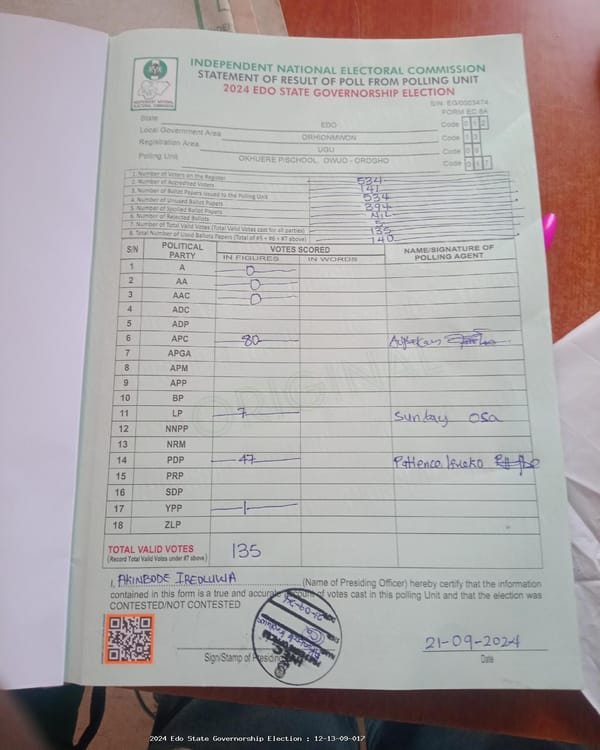 INDEPENDENT NATIONAL ELECTORAL COMMISSION
STATEMENT OF RESULT OF POLL FROM POLLING UNIT
2024 EDO STATE GOVERNORSHIP ELECTION
S/N: EG/0003474
FORM EC 8A
State EDO Code 012
Local Government Area ORHIONMWON Code 13
Registration Area UGU Code 09
Polling Unit OKHUERE P/SCHOOL, OWUO - OROGHO Code 017
1. Number of Voters on the Register 534
2. Number of Accredited Voters 141
3. Number of Ballot Papers Issued to the Polling Unit 534
4. Number of Unused Ballot Papers 394
5. Number of Spoiled Ballot Papers NIL
6. Number of Rejected Ballots 5
7. Number of Total Valid Votes (Total Valid Votes cast for all parties) 135
8. Total Number of Used Ballots Papers (Total of #5 + #6 + #7 above) 140
S/N POLITICAL PARTY VOTES SCORED NAME/SIGNATURE OF POLLING AGENT
IN FIGURES IN WORDS
1 A 0
2 AA 0
3 AAC 0
4 ADC
5 ADP
6 APC 80
7 APGA
8 APM
9 APP
10 BP
11 LP 7 Sunday Osa
12 NNPP
13 NRM
14 PDP 47 Patience
15 PRP
16 SDP
17 YPP 1
18 ZLP
ORIGINAL
TOTAL VALID VOTES 135
(Record Total Valid Votes under #7 above)
I, AKINBODE IREOLUWA (Name of Presiding Officer) hereby certify that the information
contained in this form is a true and accurate account of votes cast in this polling Unit and that the election was
CONTESTED/NOT CONTESTED
21-09-2024
Sign/Stamp of Presiding Date
2024 Edo State Governorship Election : 12-13-09-017